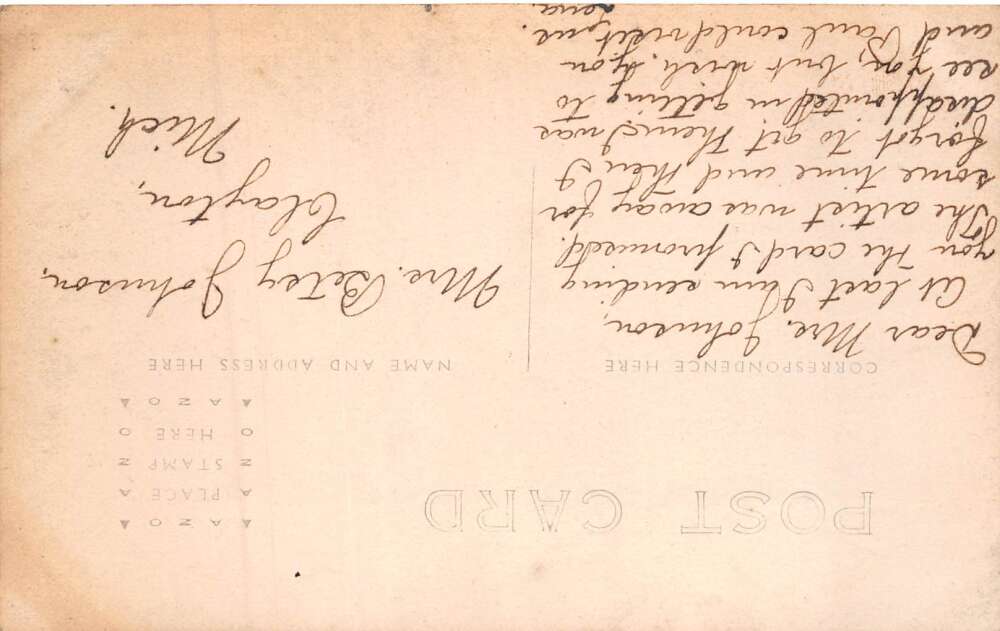 POST CARD
CORRESPONDENCE HERE
NAME AND ADDRESS HERE
▲ A Z O ▲
A PLACE A
Z STAMP Z
O HERE O
▲ A Z O ▲
Dear Mrs. Johnson,
At last I am sending
you the card I promised.
The artist was away for
some time and then I
forgot to get them. I was
disappointed in getting to
see you, but wish you
and Paul could visit me.
Lena.
Mrs. Betsy Johnson,
Clayton,
Mich.